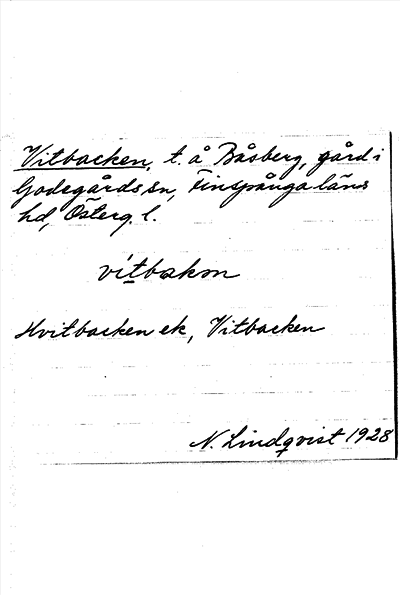 Vitbacken, t. å Båsberg, gård i
Godegårds sn, Finspånga läns
hd, Österg. l.
vítbakən
Hvitbacken ek, Vitbacken
N. Lindqvist 1928